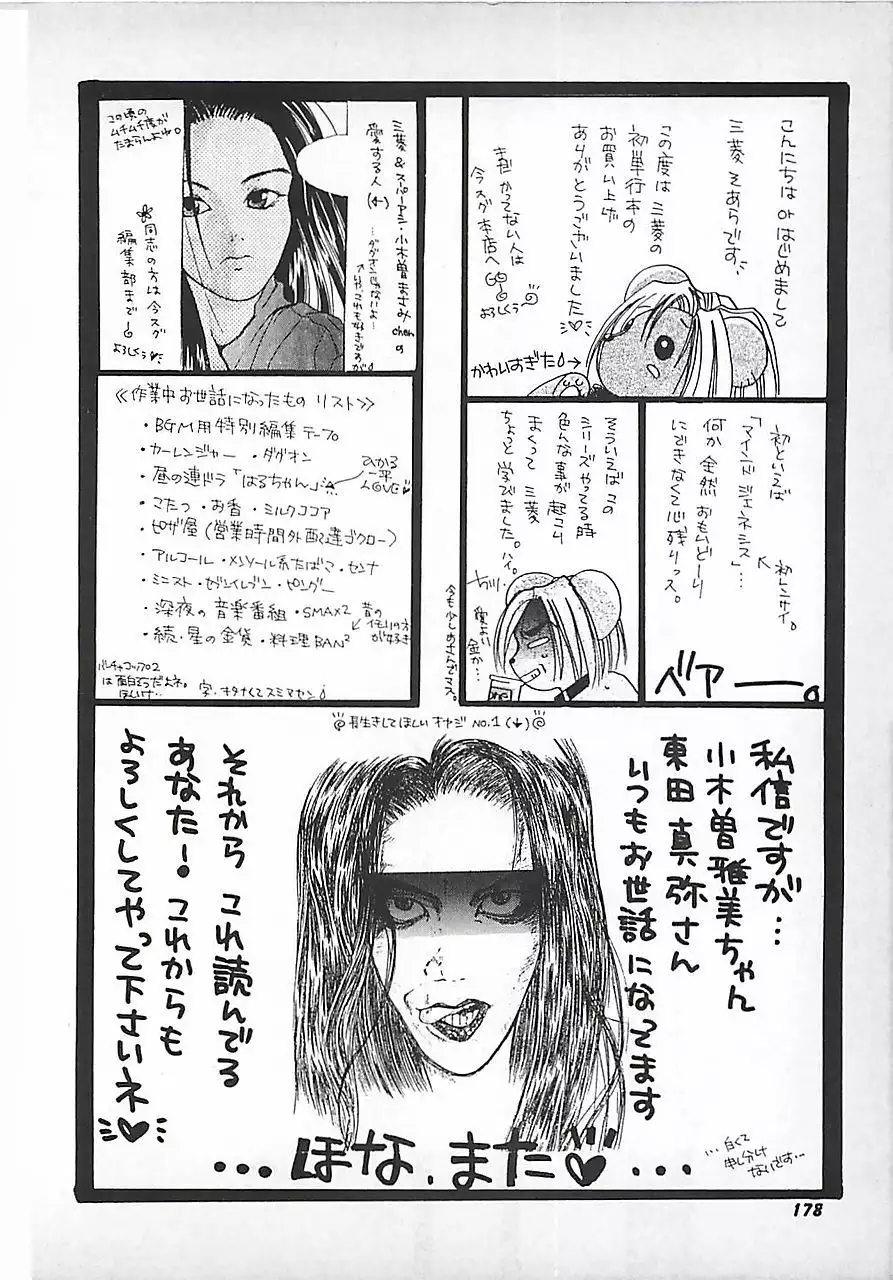 こんにちは or はじめまして
三菱 そあらです
この度は 三菱の
初単行本の
お買い上げ
ありがとうございました
まだ かってない人は
今スグ 本店へ GO
よろしくぅ
かわいすぎた
三菱 & スパーアシ・小木曽まさみchanの
愛する人 (←)
…ダグオンじゃないよ…
いや、これも好きですが
この頃の
ムチムチ度が
たまらんよね。
同志の方は今スグ
編集部まで
よろしくぅ
初といえば 初レンサイ。
「マインド ジェネシス」…
何か 全然 おもいどーり
にできなくて 心残りっス。
ベアー。
そういえば この
シリーズやってる時
色んな事が 起こり
まくって 三菱
ちょっと 学びました。ハイ。
愛よい
金か…
今も少しめさんでマス。
≪作業中お世話になったもの リスト≫
・BGM用特別編集テープ
・カーレンジャー・ダグオン
・昼の連ドラ「はるちゃん」
ひかる
一平
LOVE
・こたつ・お香・ミルクココア
・ピザ屋(営業時間外配達ゴクロー)
・アルコール・メンソール系たばこ・センナ
・ミニスト・セブンイレブン・ピングー
・深夜の音楽番組・SMAX2
・続・星の金貨・料理BAN²
昔の
イモリの方
が好き
バーチャコップ2
は面白そうだよネ。
ほしいけ…
字・キタナくてスミマセン
長生きしてほしい オヤジ NO.1 (↓)
私信ですが…
小木曽雅美ちゃん
東田 真弥さん
いつもお世話になってます
それから これ読んでる
あなた! これからも
よろしくしてやって下さいネ
…ほな、また…
…白くて
申し分け
ないです…
178